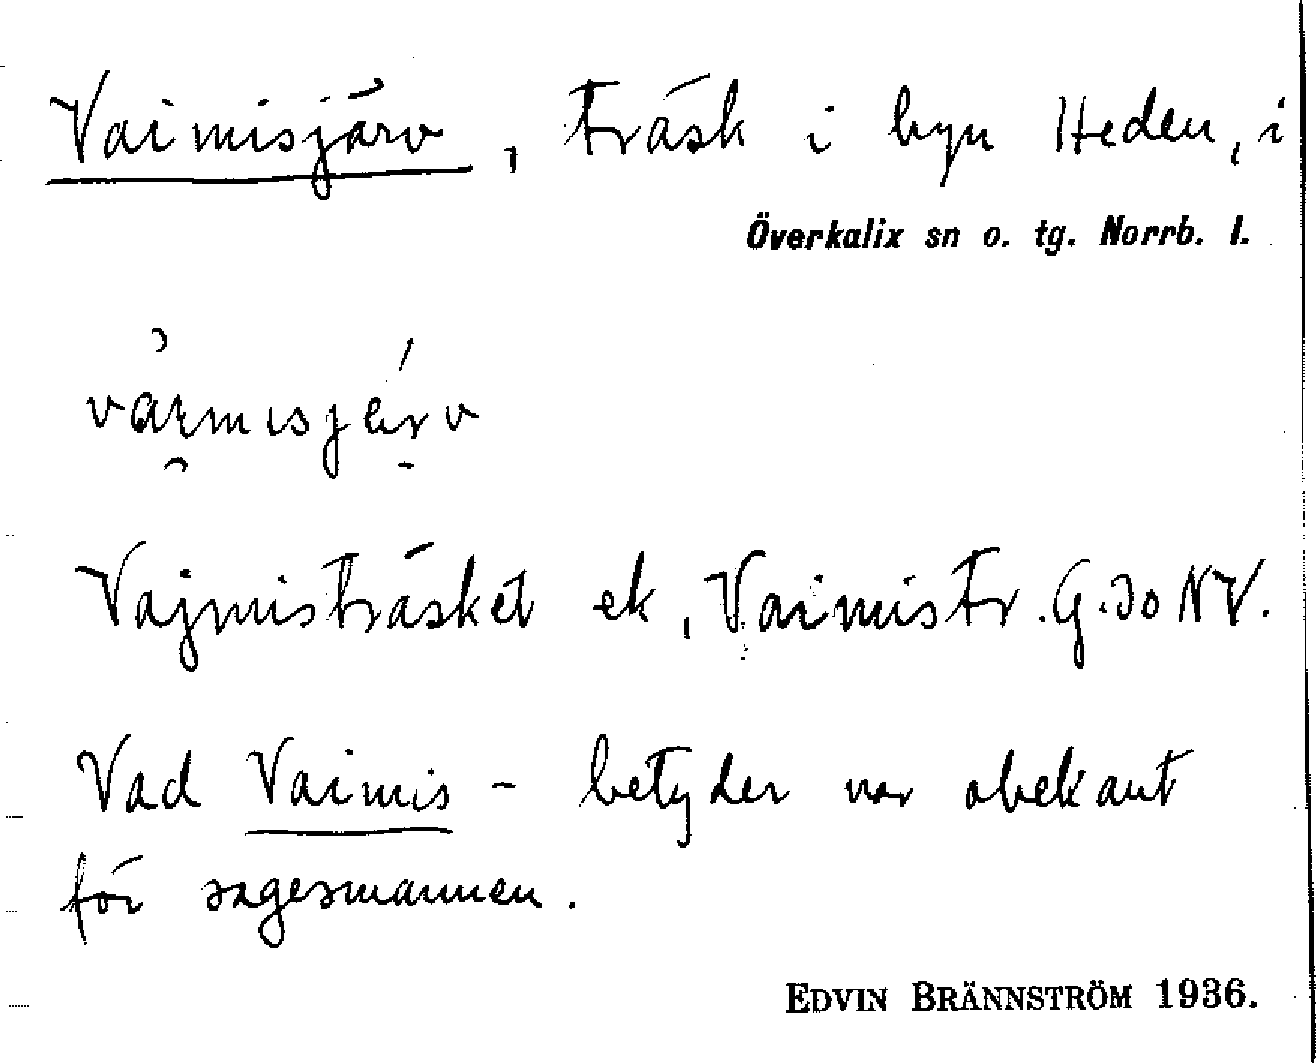 Vaimisjärv, träsk i byn Heden, i
Överkalix sn o. tg. Norrb. l.
Vajmisträsket ek, Vaimistr. G. 30 NV.
Vad Vaimis- betyder var obekant
för sagesmannen.
EDVIN BRÄNNSTRÖM 1936.